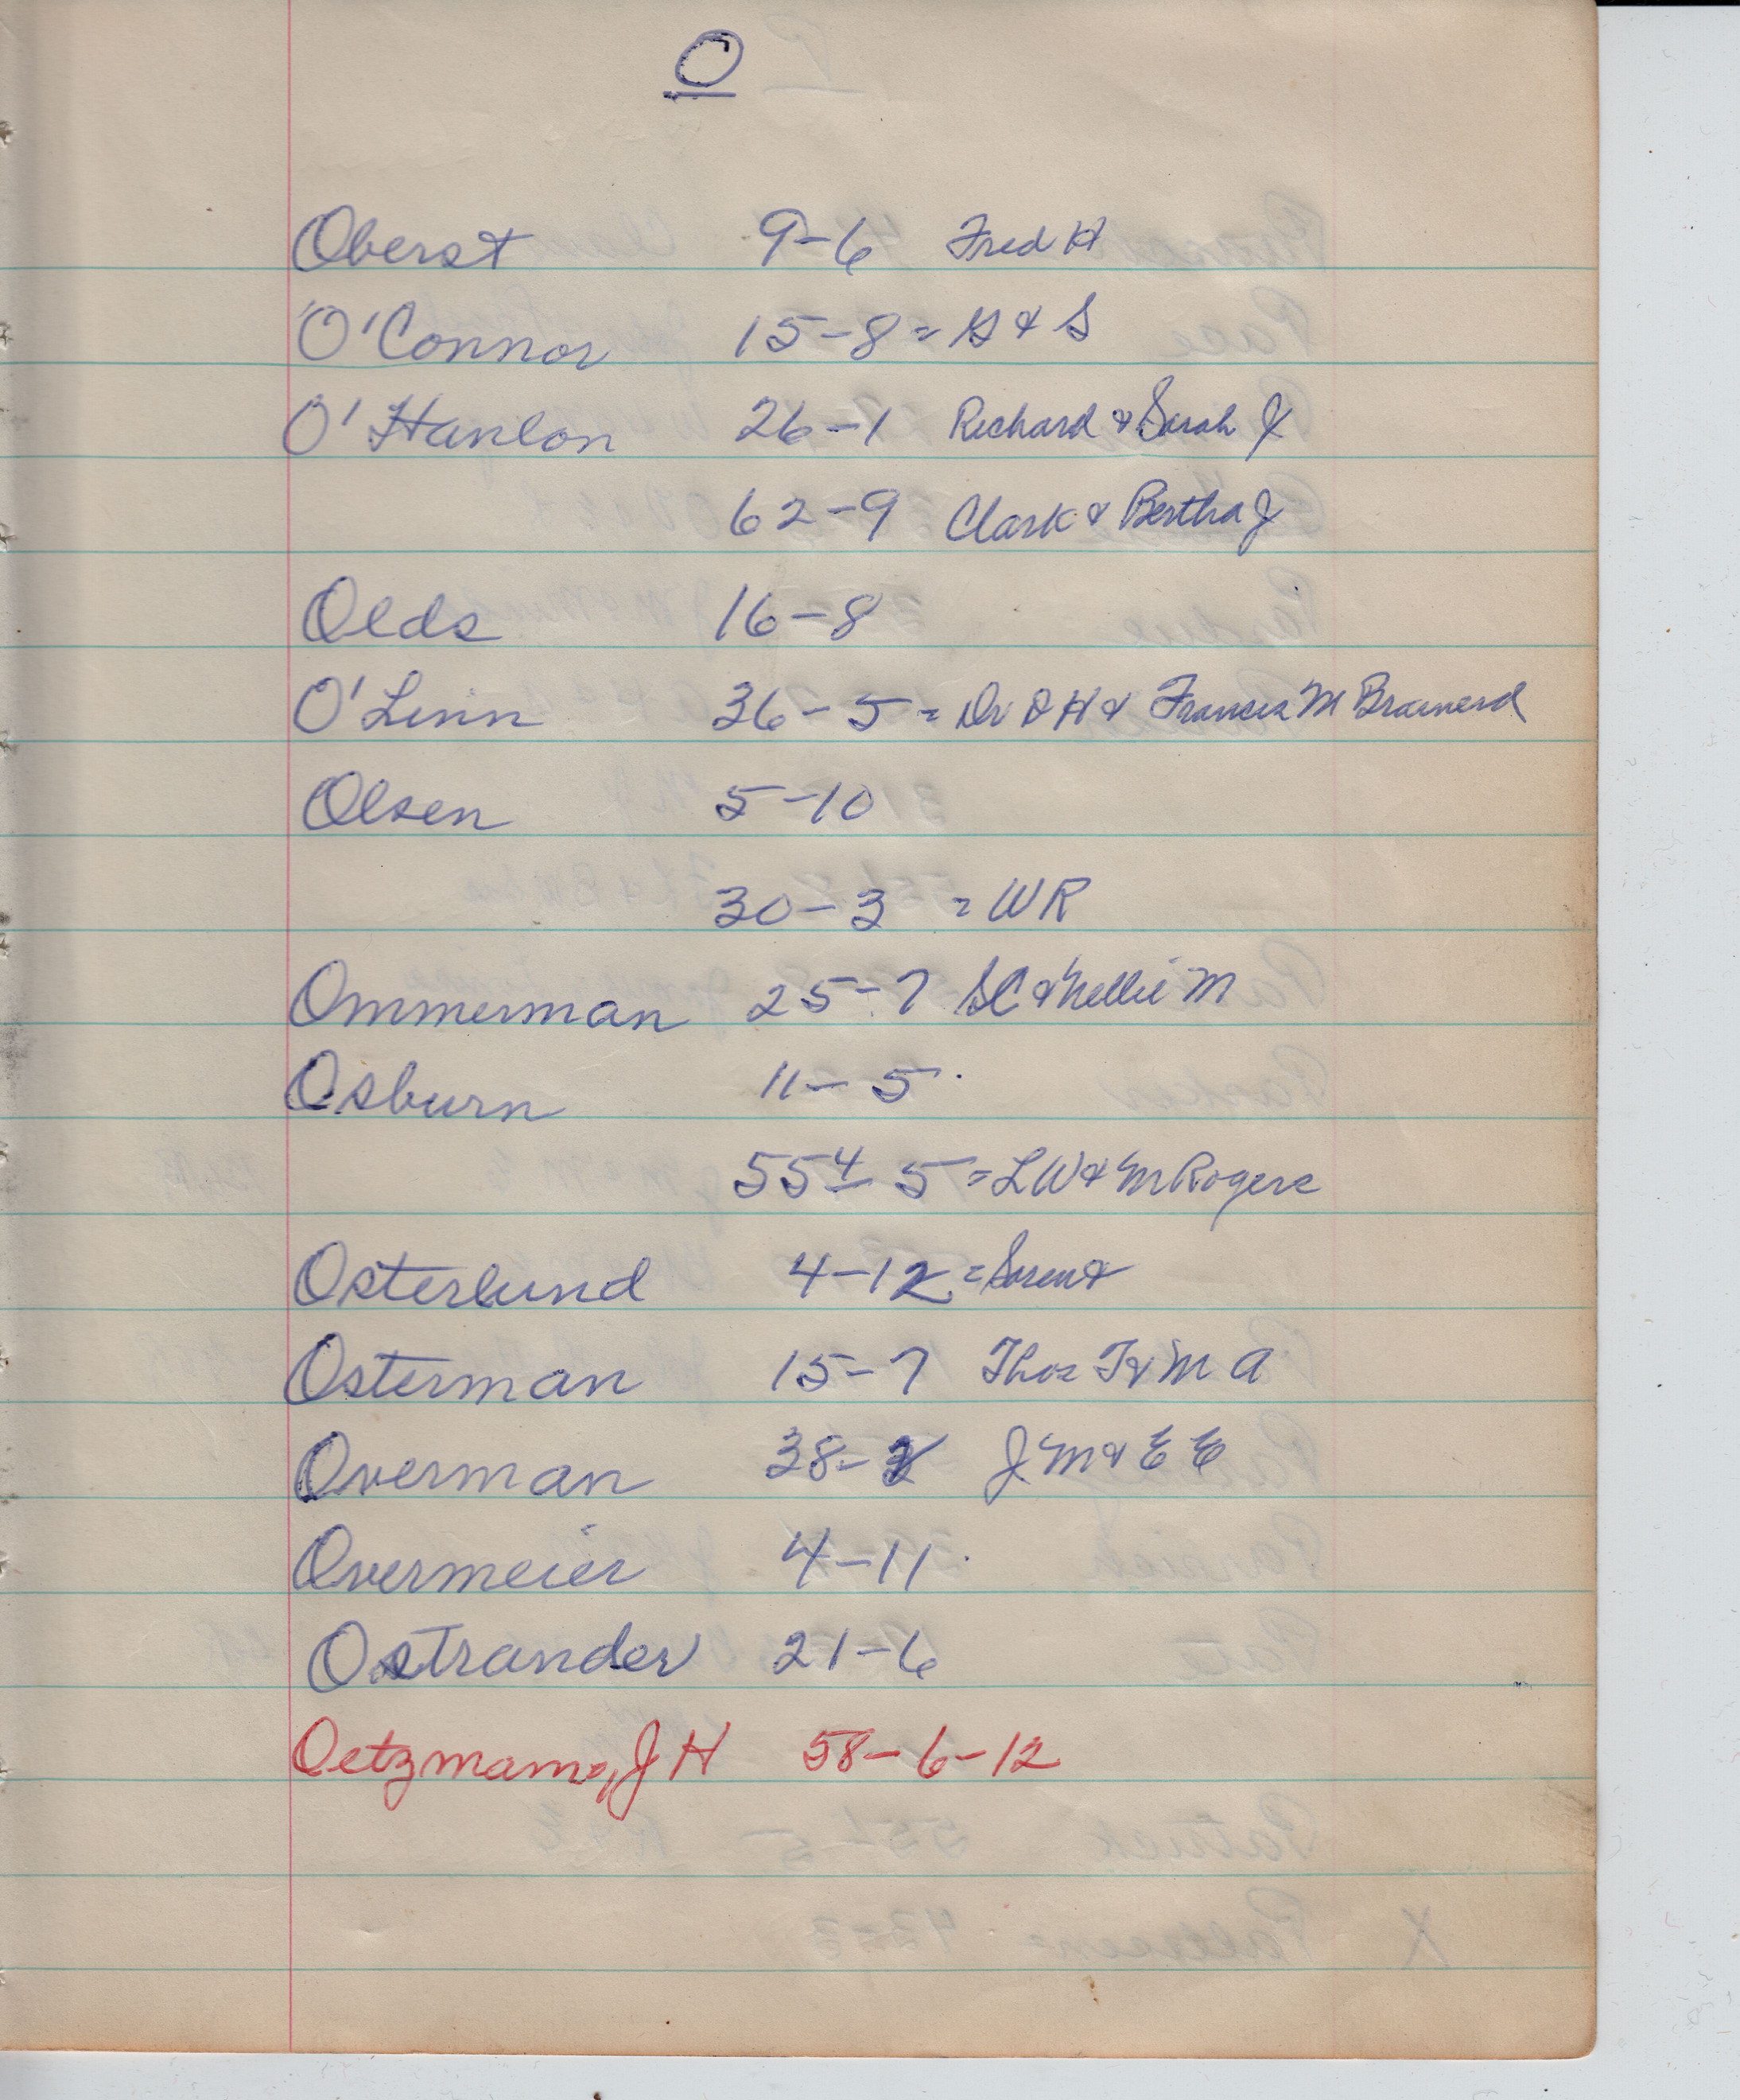 O
Oberst 9-6 Fred H
O'Connor 15-8 = G & S
O'Hanlon 26-1 Richard & Sarah J
62-9 Clark & Bertha J
Olds 16-8
O'Linn 36-5 = Dr D H & Francis M Brainerd
Olsen 5-10
30-3 = W R
Ommerman 25-7 S C & Nellie M
Osburn 11-5
55 4 - 5 = L W & M Rogers
Osterlund 4-12 = Soren &
Osterman 15-7 Thos T & M A
Overman 38- J M & E E
Overmeier 4-11
Ostrander 21-6
Oetzmann, J H 58-6-12